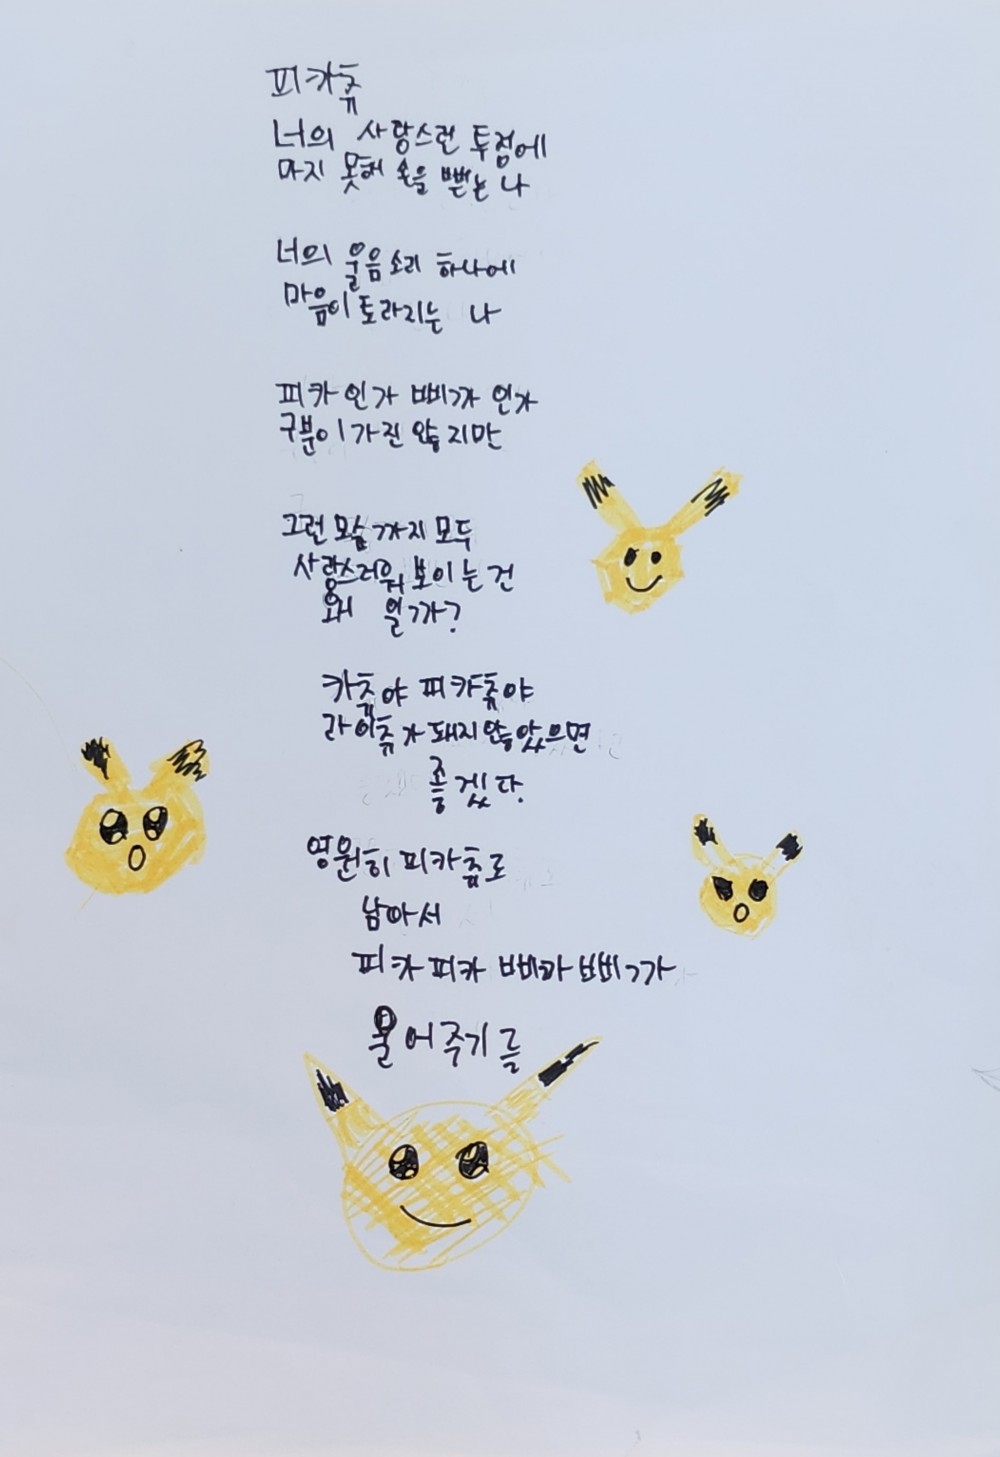 피카츄
너의 사랑스런 투정에
마지 못해 손을 뻗는 나
너의 울음소리 하나에
마음이 토라지는 나
피카인가 삐까 인가
구분이 가진 않지만
그런 모습까지 모두
사랑스러워 보이는 건
왜 일까?
카츄야 피카츄야
라이츄가 돼지 않았으면
좋겠다.
영원히 피카츄로
남아서
피카 피카 삐까 삐까
울어주기를